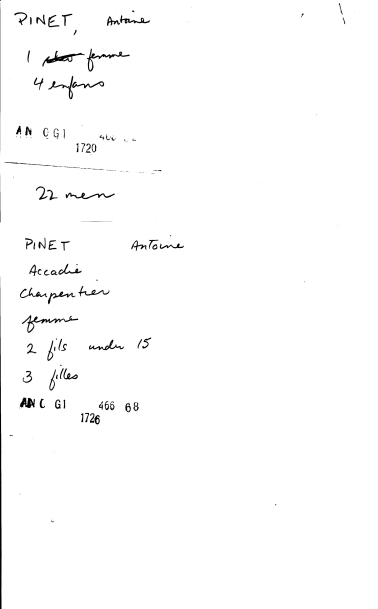 PINET, Antoine
1 femme
4 enfans
AN C G1 466
1720
22 men
PINET Antoine
Accadie
Charpentier
femme
2 fils under 15
3 filles
AN C G1 466 68
1726